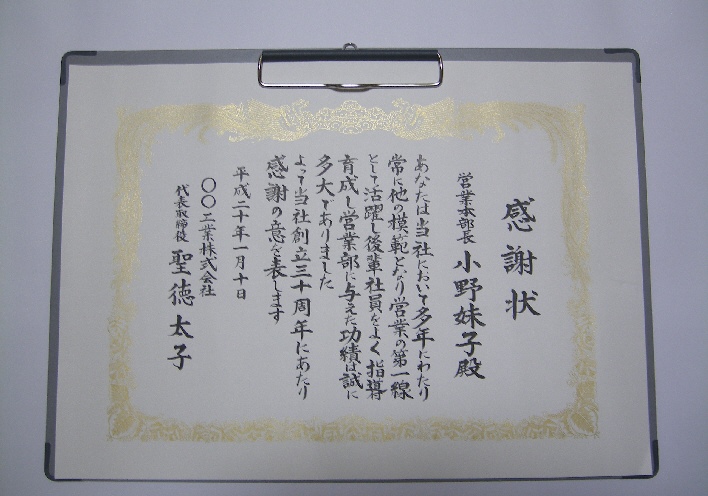 感謝状
営業本部長 小野妹子殿
あなたは当社において多年にわたり
常に他の模範となり営業の第一線
として活躍し後輩社員をよく指導
育成し営業部に与えた功績は誠に
多大でありました
よって当社創立三十周年にあたり
感謝の意を表します
平成二十年一月十日
〇〇工業株式会社
代表取締役 聖徳太子